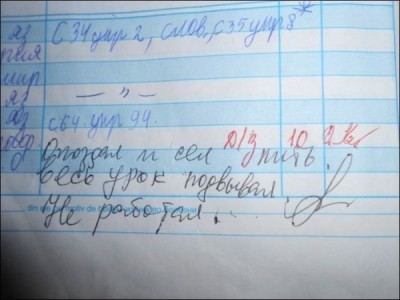 яз С 34 упр 2, слов, с 35 упр 8*
мир
яз — " —
яз с 64 упр 94.
Опоздал и сел Д/З пить
весь урок подвывал
Не работал.